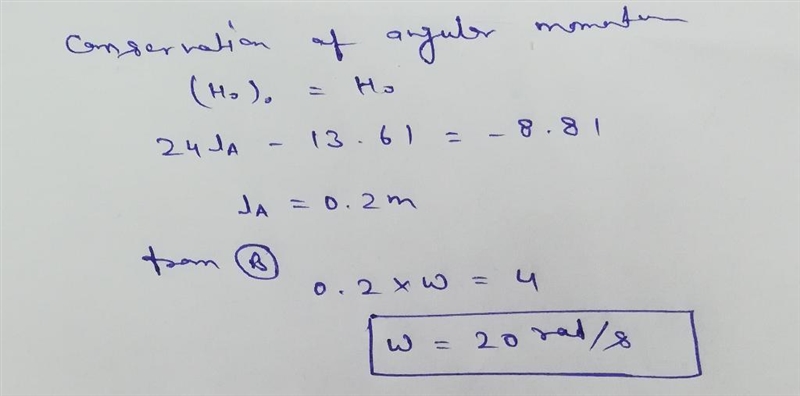 Conservation of angular momentum
(H₀)₀ = H₀
24 lA - 13.61 = - 8.81
lA = 0.2m
from Ⓑ
0.2 × ω = 4
ω = 20 rad/s